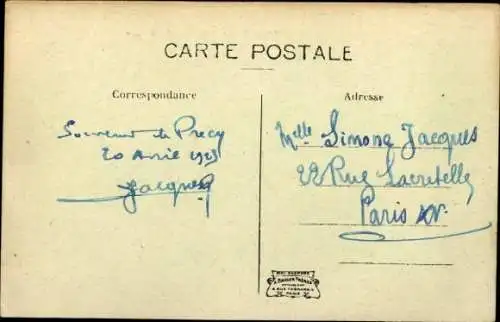 CARTE POSTALE
Correspondance
Adresse
Souvenir de Precy
20 Avril 1923
Jacques
Melle Simone Jacques
22 Rue Lacretelle
Paris XV
PARIS